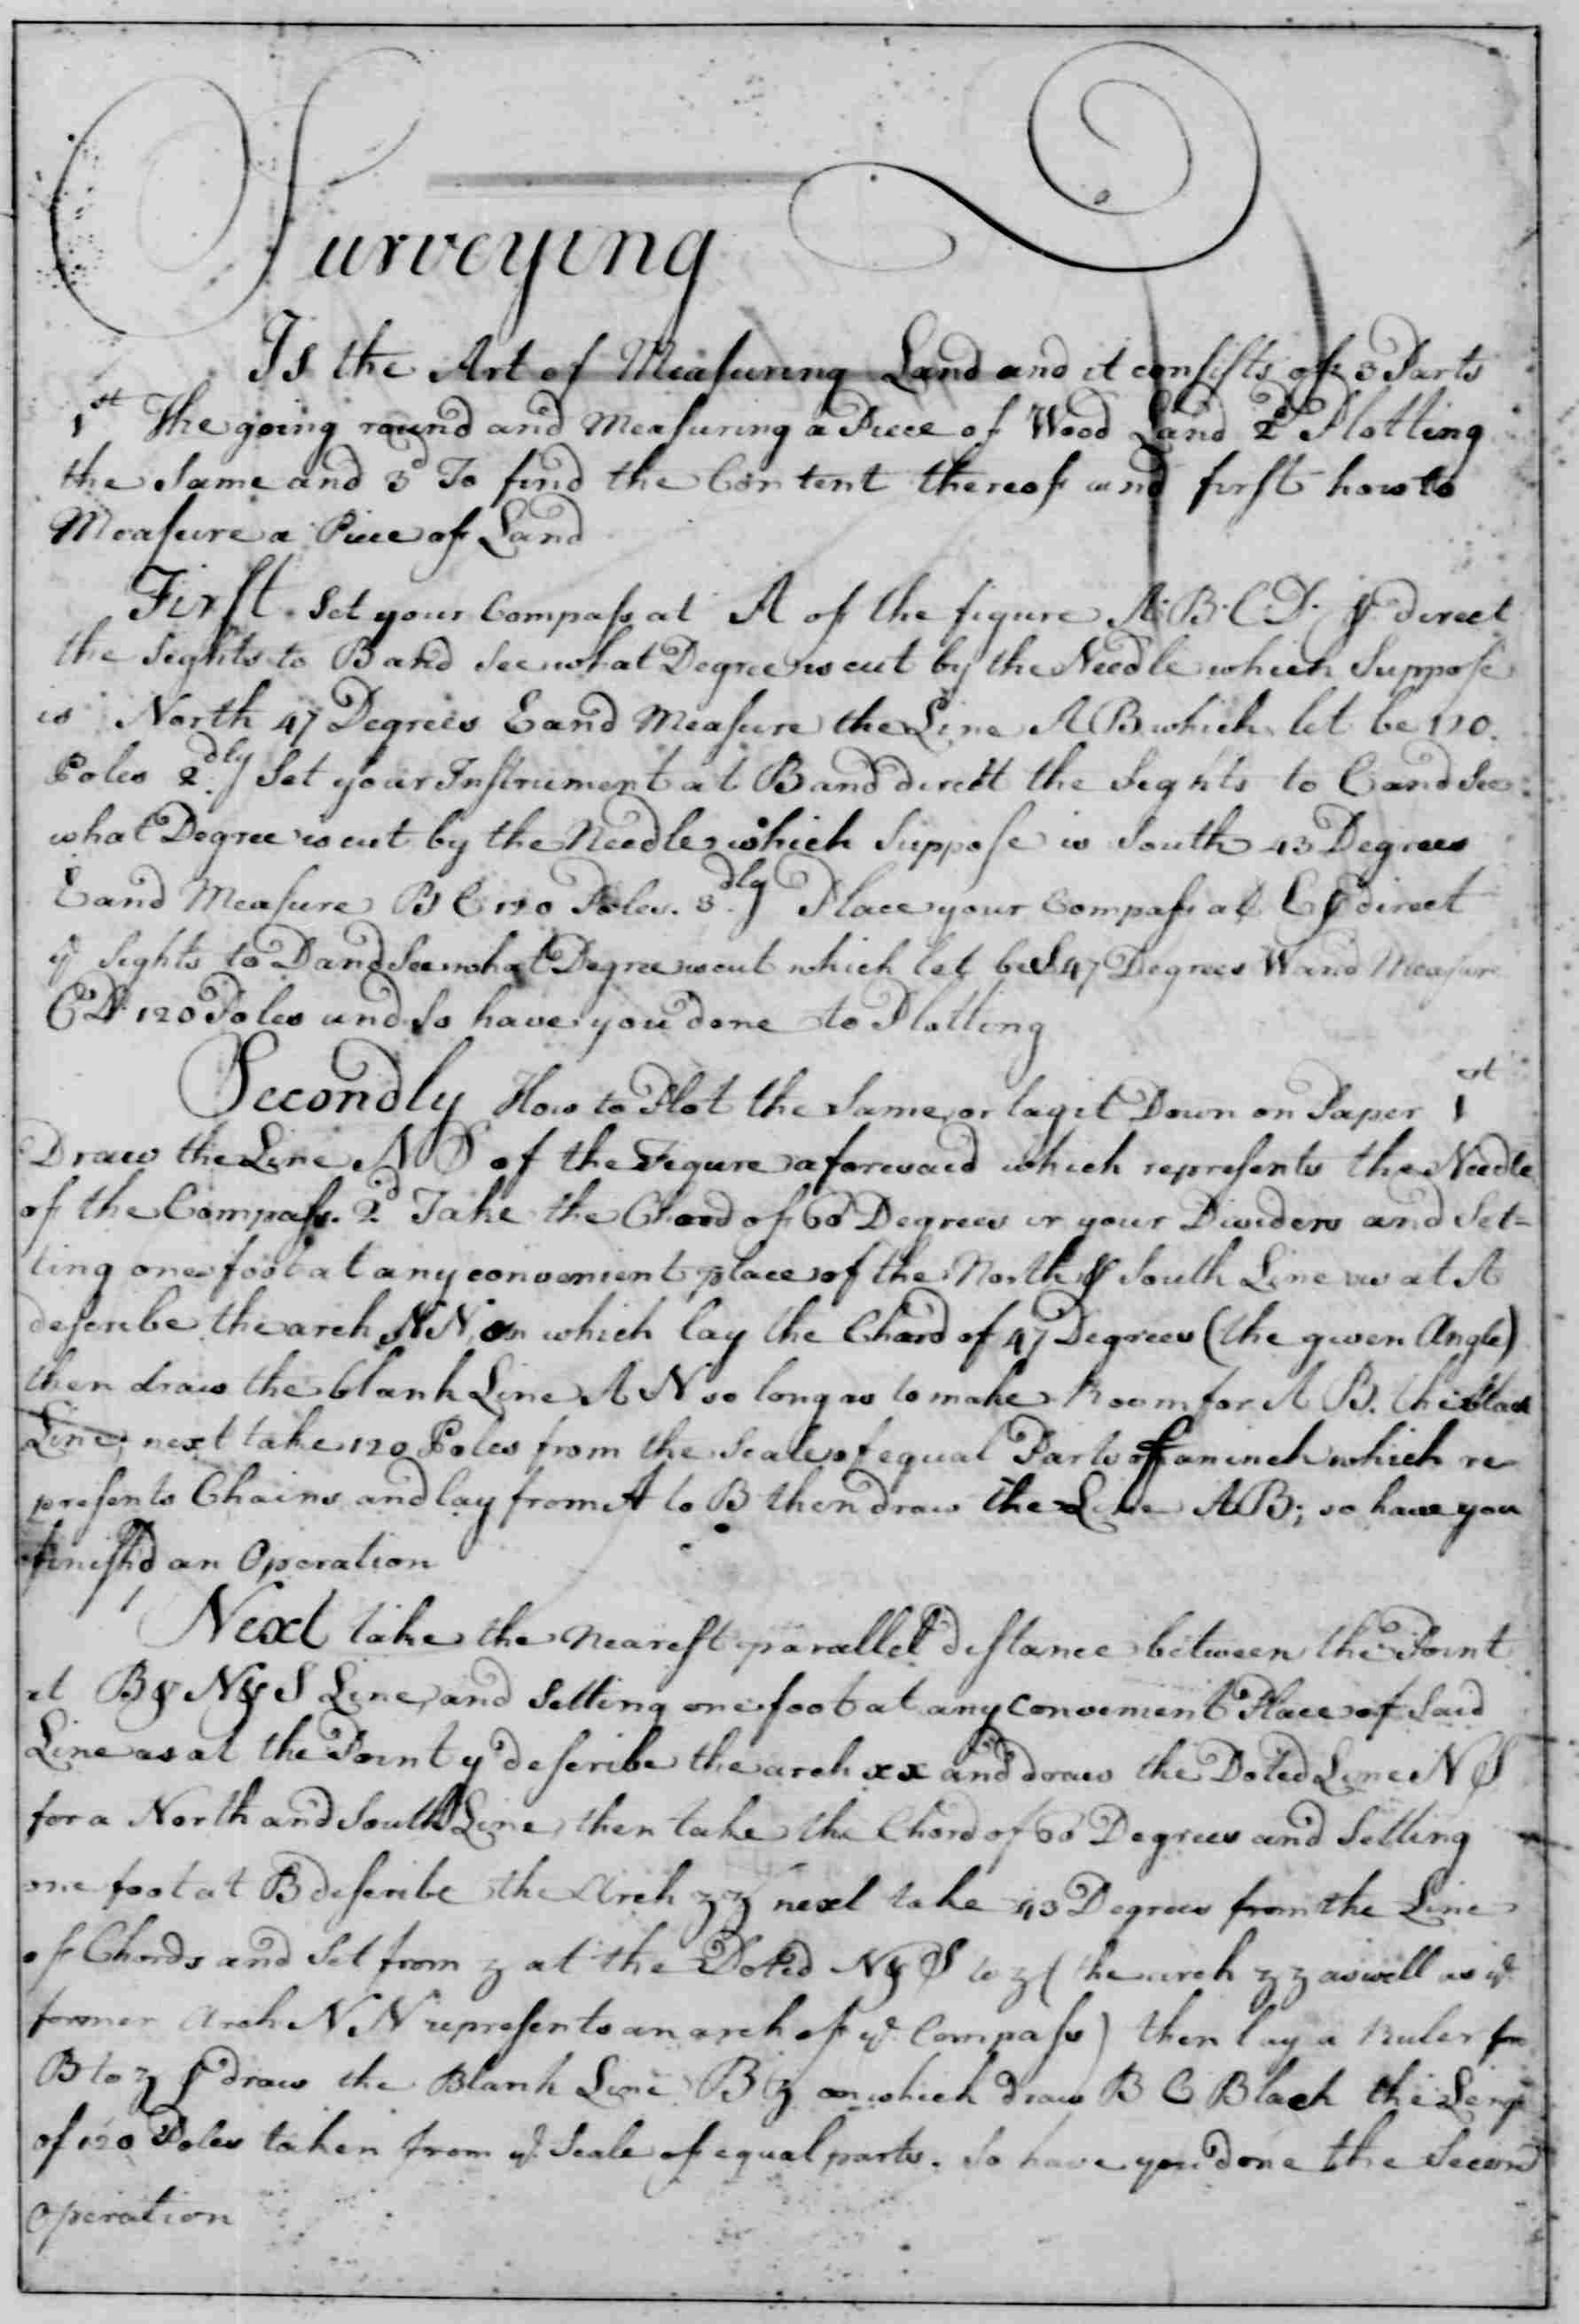 Surveying
Is the Art of Measuring Land and it consists of 3 Parts
1st The going round and Measuring a Piece of Wood Land 2d Plotting
the Same and 3d To find the Content thereof and first how to
Measure a Piece of Land
First Set your Compass at A of the figure A.B.C.D. & direct
the Sights to B and See what Degree is cut by the Needle which Suppose
is North 47 Degrees E and Measure the Line AB which let be 120.
Poles 2dly Set your Instrument at B and direct the Sights to C and See
what Degree is cut by the Needle which Suppose is South 43 Degrees
E and Measure B C 120 Poles. 3dly Place your Compass at C & direct
ye Sights to D and See what Degree is cut which let be S 47 Degrees W and Measure
CD 120 Poles and So have you done to Plotting
Secondly How to Plot the Same or lay it Down on Paper 1st
Draw the Line N S of the Figure aforesaid which represents the Needle
of the Compass. 2d Take the Chord of 60 Degrees in your Dividers and Set=
ting one foot at any convenient place of the North & South Line as at A
describe the arch N N, on which lay the Chord of 47 Degrees (the given Angle)
then draw the blank Line A N so long as to make Room for A B. the
Line, next take 120 Poles from the Scale of equal Parts of an inch which re
presents Chains and lay from A to B then draw the Line AB; so have you
finish'd an Operation
Next take the nearest parallel distance between the Point
at B & N & S Line, and Setting one foot at any convenient Place of Said
Line as at the Point y describe the arch x x and draw the Doted Line N S
for a North and South Line, then take the Chord of 60 Degrees and Setting
one foot at B describe the Arch z z next take 43 Degrees from the Line
of Chords and Set from z at the Doted N & S to z (the arch z z as well as ye
former Arch N N represents an arch of ye Compass) then lay a Ruler fm
B to z & draw the Blank Line B z on which draw B C Black the Leng
of 120 Poles taken from ye Scale of equal parts. So have you done the Second
Operation